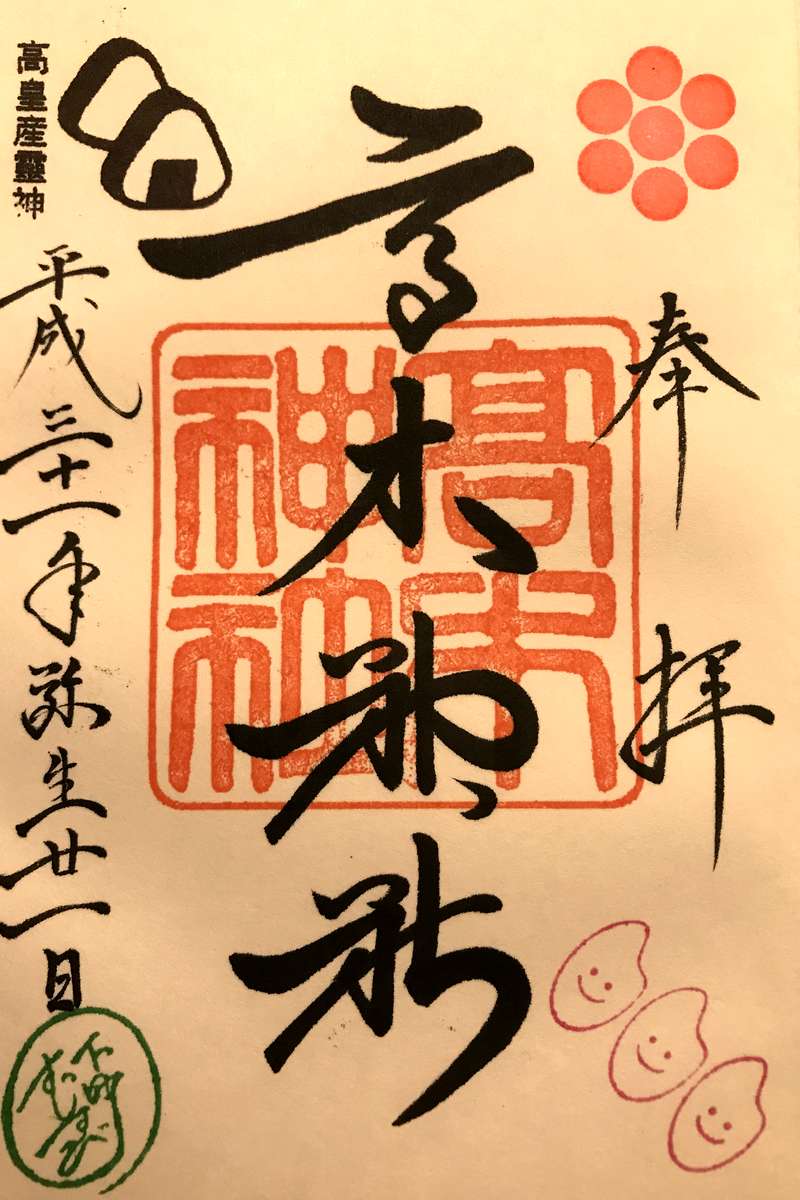 奉拝
高木神社
高木
神社
高皇産靈神
平成三十一年弥生廿一日